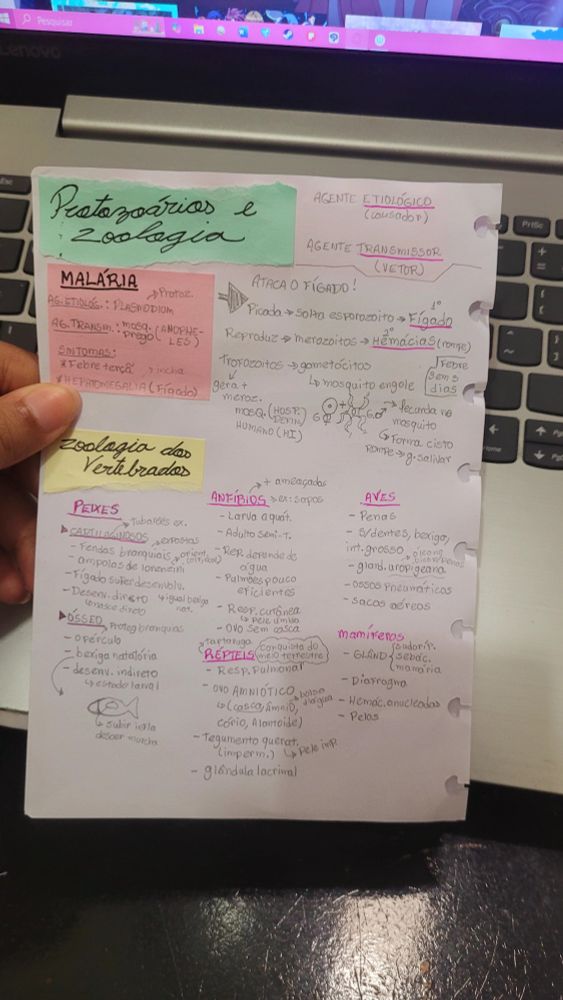 Pesquisar
Lenovo
Esc
PrtSc
Protozoários e
Zoologia
AGENTE ETIOLÓGICO
(causador)
AGENTE TRANSMISSOR
(VETOR)
MALÁRIA
→ Protoz.
AG. ETIOLÓG.: PLASMODIUM
AG. TRANSM.: mosq. (ANOPHE-
prego LES)
SINTOMAS:
* Febre terçã → incha
* HEPATOMEGALIA (Fígado)
ATACA O FÍGADO!
Picada → solta esporozoito → Fígado 1º
Reproduz → merozoitos → Hemácias (rompe) 2º
Febre
Trofozoitos → gametócitos
gera +
meroz.
→ mosquito engole
dias
MOSQ. (HOSP. DEFIN.)
HUMANO (HI)
G♀ + G♂ → fecunda no
mosquito
→ Forma cisto
ROMPE → g. salivar
Zoologia dos
Vertebrados
PEIXES
→ Tubarões ex.
CARTILAGINOSOS
- Fendas branquiais
- ampolas de lorenzini
- Fígado super desenvolv.
- Desenv. direto → igual bexiga nat.
↳ nasce direto
ÓSSEO → Proteg branquias
- opérculo
- bexiga natatória
- desenv. indireto
↳ estado larval
↳ subir infla
descer murcha
ANFÍBIOS → ex: sapos
→ + ameaçados
- Larva aquát.
- Adulto semi-t.
- Rep. depende de
água
- Pulmões pouco
eficientes
- Resp. cutânea
↳ pele úmida
- OVO sem casca
tartaruga
RÉPTEIS conquista do
meio terrestre
- Resp. Pulmonar
- OVO AMNIÓTICO → bolsa
d'água
(casca, âmnio,
cório, Alantoide)
- Tegumento querat.
(imperm.) ↳ Pele imp.
- glândula lacrimal
AVES
- Penas
- S/dentes, bexiga,
int. grosso
- gland. uropigeana
- Ossos Pneumáticos
- sacos aéreos
mamíferos
- GLÂND { sudoríp.
sebác.
mamária
- Diafragma
- Hemác. anucleadas
- Pelos